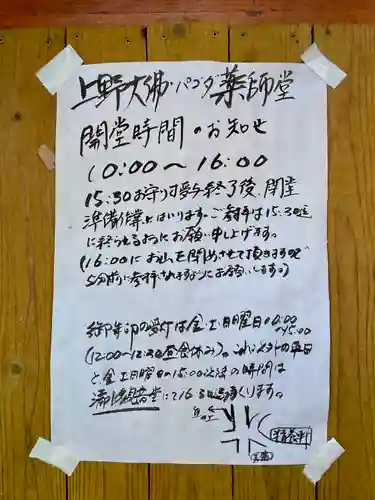 上野大佛・パゴダ薬師堂
開堂時間のお知せ
10:00～16:00
15:30お守り授与終了後、閉堂
準備作業にはいります。ご参拝は15:30迄
に終られるようにお願い申し上げます。
(16:00にお山を閉めさせて頂きますので
5分前に参拝されますようにお願いします。)
御朱印の受付は金・土・日曜日10:00
~15:00
(12:00~12:30昼食休み)。これ以外の平日
と金土日曜日の15:00以後の時間は
清水観音堂にて16:30迄書くります。